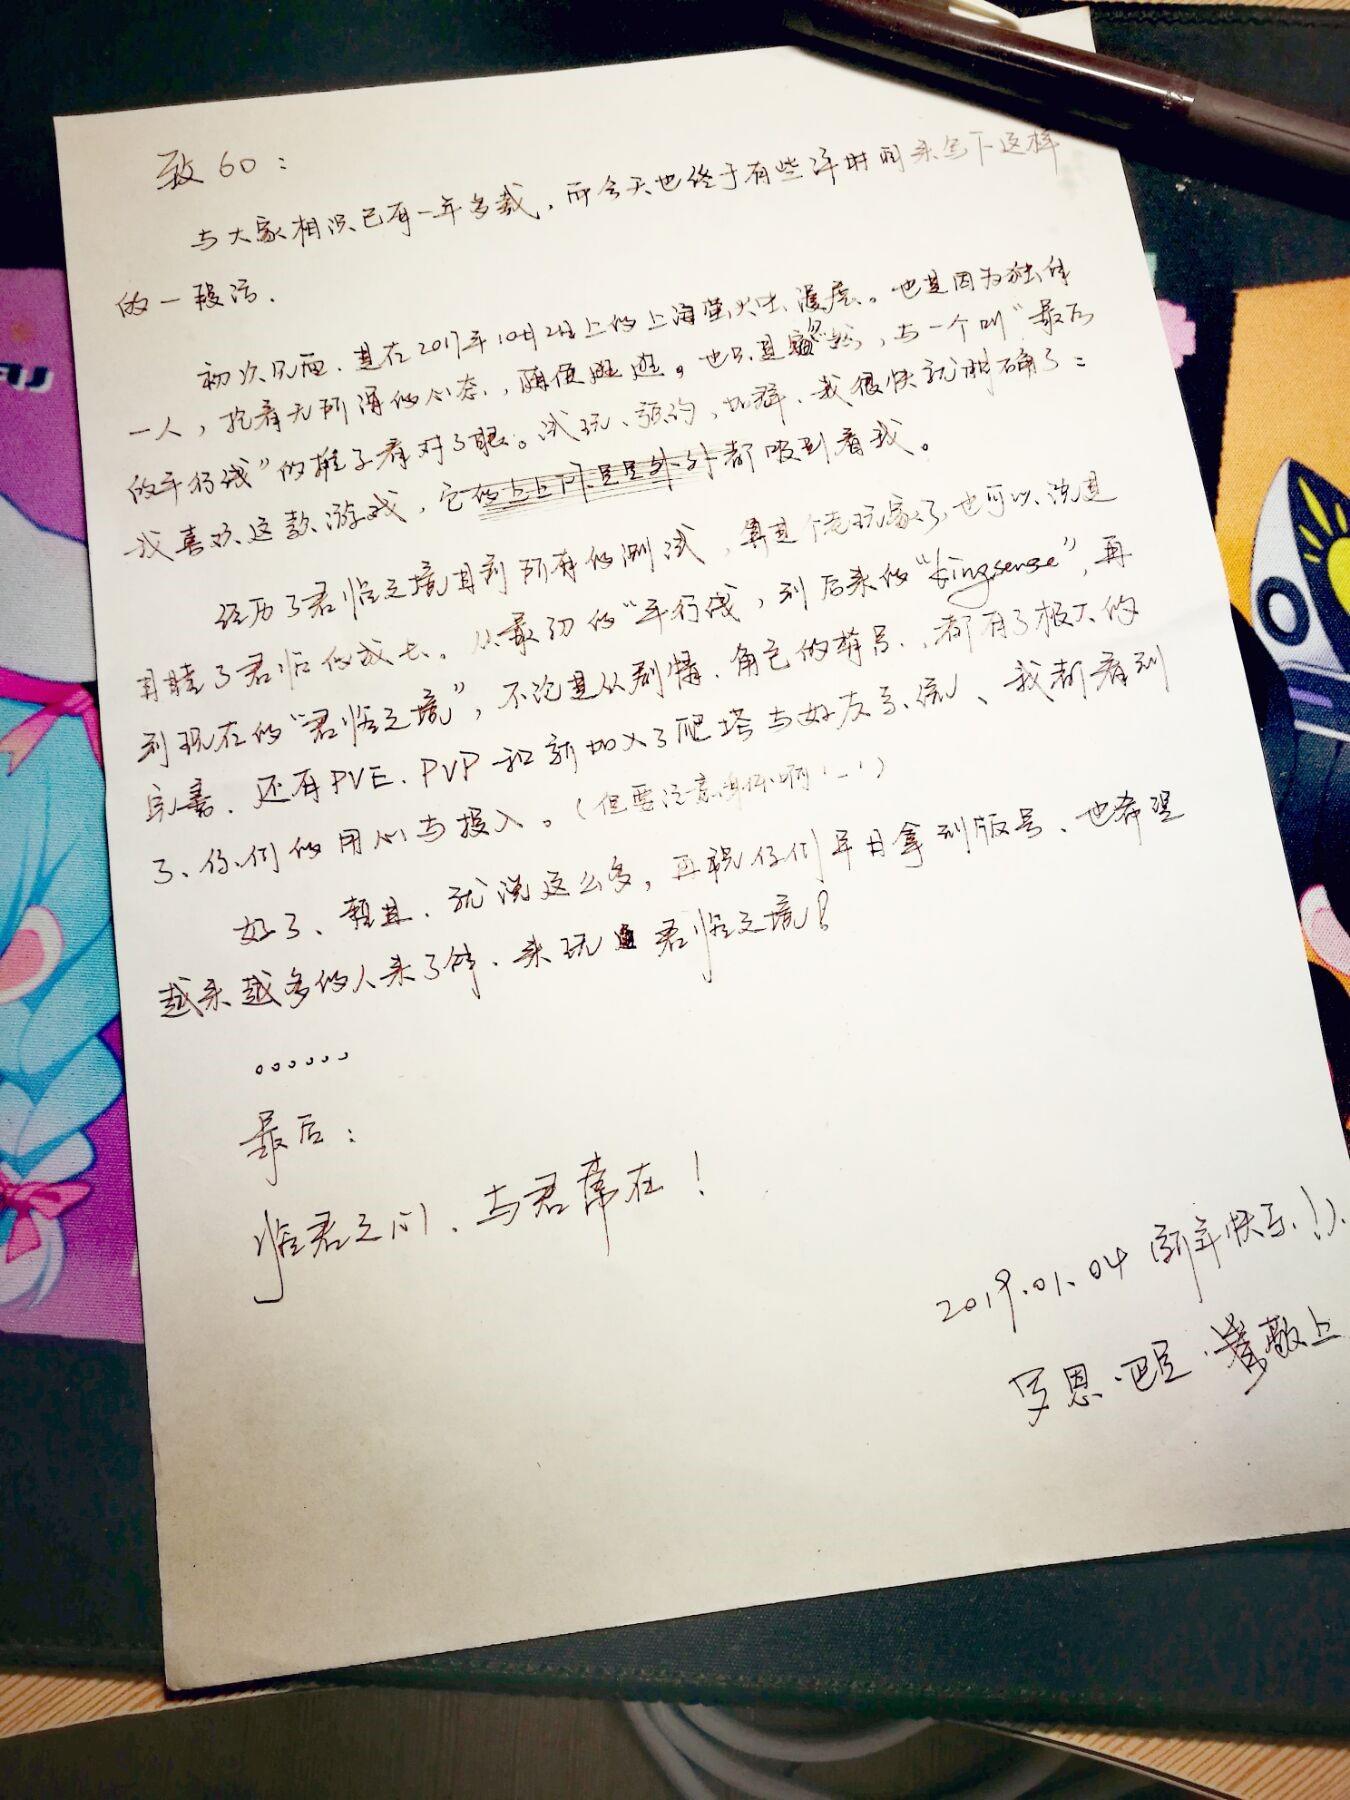 致60：
与大家相识已有一年多载，而今天也终于有些许时间来写下这样
的一段话．
初次见面．是在2017年10月2日上的上海萤火虫漫展．也是因为独自
一人，抱着无所谓的心态，随便逛逛。也只是偶然，与一个叫“最后
的平行线”的摊子看对了眼。试玩、预约，加群、我很快就明确了：
我喜欢这款游戏，它 都吸引着我。
经历了君临之境目前所有的测试，算是个老玩家了，也可以说是
目睹了君临的成长．从最初的“平行线，到后来的“kingsense”，再
到现在的“君临之境”，不论是从剧情、角色的 ，都有了极大的
完善．还有PVE．PVP和新加入了爬塔与好友系统、我都看到
了、你们的用心与投入。（但要注意身体啊'－'）
好了、 ．就说这么多，再祝你们早日拿到版号、也希望
越来越多的人来了解、来玩 君临之境！
。。。。。。
最后：
临君之间、与君常在！
2019.01.04 （新年快乐！）
罗恩·巴 · 敬上